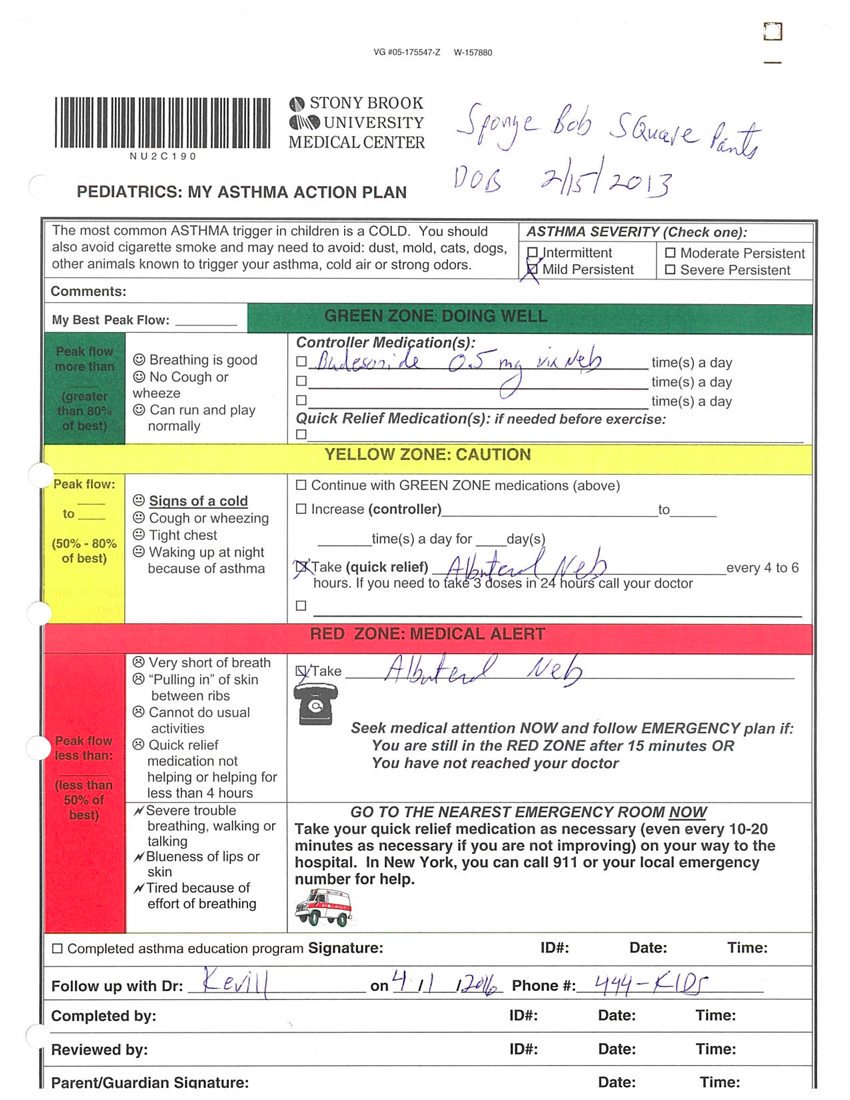 VG #05-175547-Z W-157880
NU2C190
STONY BROOK
UNIVERSITY
MEDICAL CENTER
Sponge Bob SQuare Pants
DOB 2/15/2013
PEDIATRICS: MY ASTHMA ACTION PLAN
The most common ASTHMA trigger in children is a COLD. You should
also avoid cigarette smoke and may need to avoid: dust, mold, cats, dogs,
other animals known to trigger your asthma, cold air or strong odors.
ASTHMA SEVERITY (Check one):
Intermittent
Moderate Persistent
Mild Persistent
Severe Persistent
Comments:
My Best Peak Flow:
GREEN ZONE: DOING WELL
Peak flow
more than
(greater
than 80%
of best)
Breathing is good
No Cough or
wheeze
Can run and play
normally
Controller Medication(s):
Budesonide 0.5 mg via Neb time(s) a day
time(s) a day
time(s) a day
Quick Relief Medication(s): if needed before exercise:
YELLOW ZONE: CAUTION
Peak flow:
to
(50% - 80%
of best)
Signs of a cold
Cough or wheezing
Tight chest
Waking up at night
because of asthma
Continue with GREEN ZONE medications (above)
Increase (controller) to
time(s) a day for day(s)
Take (quick relief) Albuterol Neb every 4 to 6
hours. If you need to take 3 doses in 24 hours call your doctor
RED ZONE: MEDICAL ALERT
Peak flow
less than:
(less than
50% of
best)
Very short of breath
"Pulling in" of skin
between ribs
Cannot do usual
activities
Quick relief
medication not
helping or helping for
less than 4 hours
Take Albuterol Neb
Seek medical attention NOW and follow EMERGENCY plan if:
You are still in the RED ZONE after 15 minutes OR
You have not reached your doctor
Severe trouble
breathing, walking or
talking
Blueness of lips or
skin
Tired because of
effort of breathing
GO TO THE NEAREST EMERGENCY ROOM NOW
Take your quick relief medication as necessary (even every 10-20
minutes as necessary if you are not improving) on your way to the
hospital. In New York, you can call 911 or your local emergency
number for help.
Completed asthma education program Signature: ID#: Date: Time:
Follow up with Dr: Kevill on 4/1/2016 Phone #: 444-KIDS
Completed by: ID#: Date: Time:
Reviewed by: ID#: Date: Time:
Parent/Guardian Signature: Date: Time: